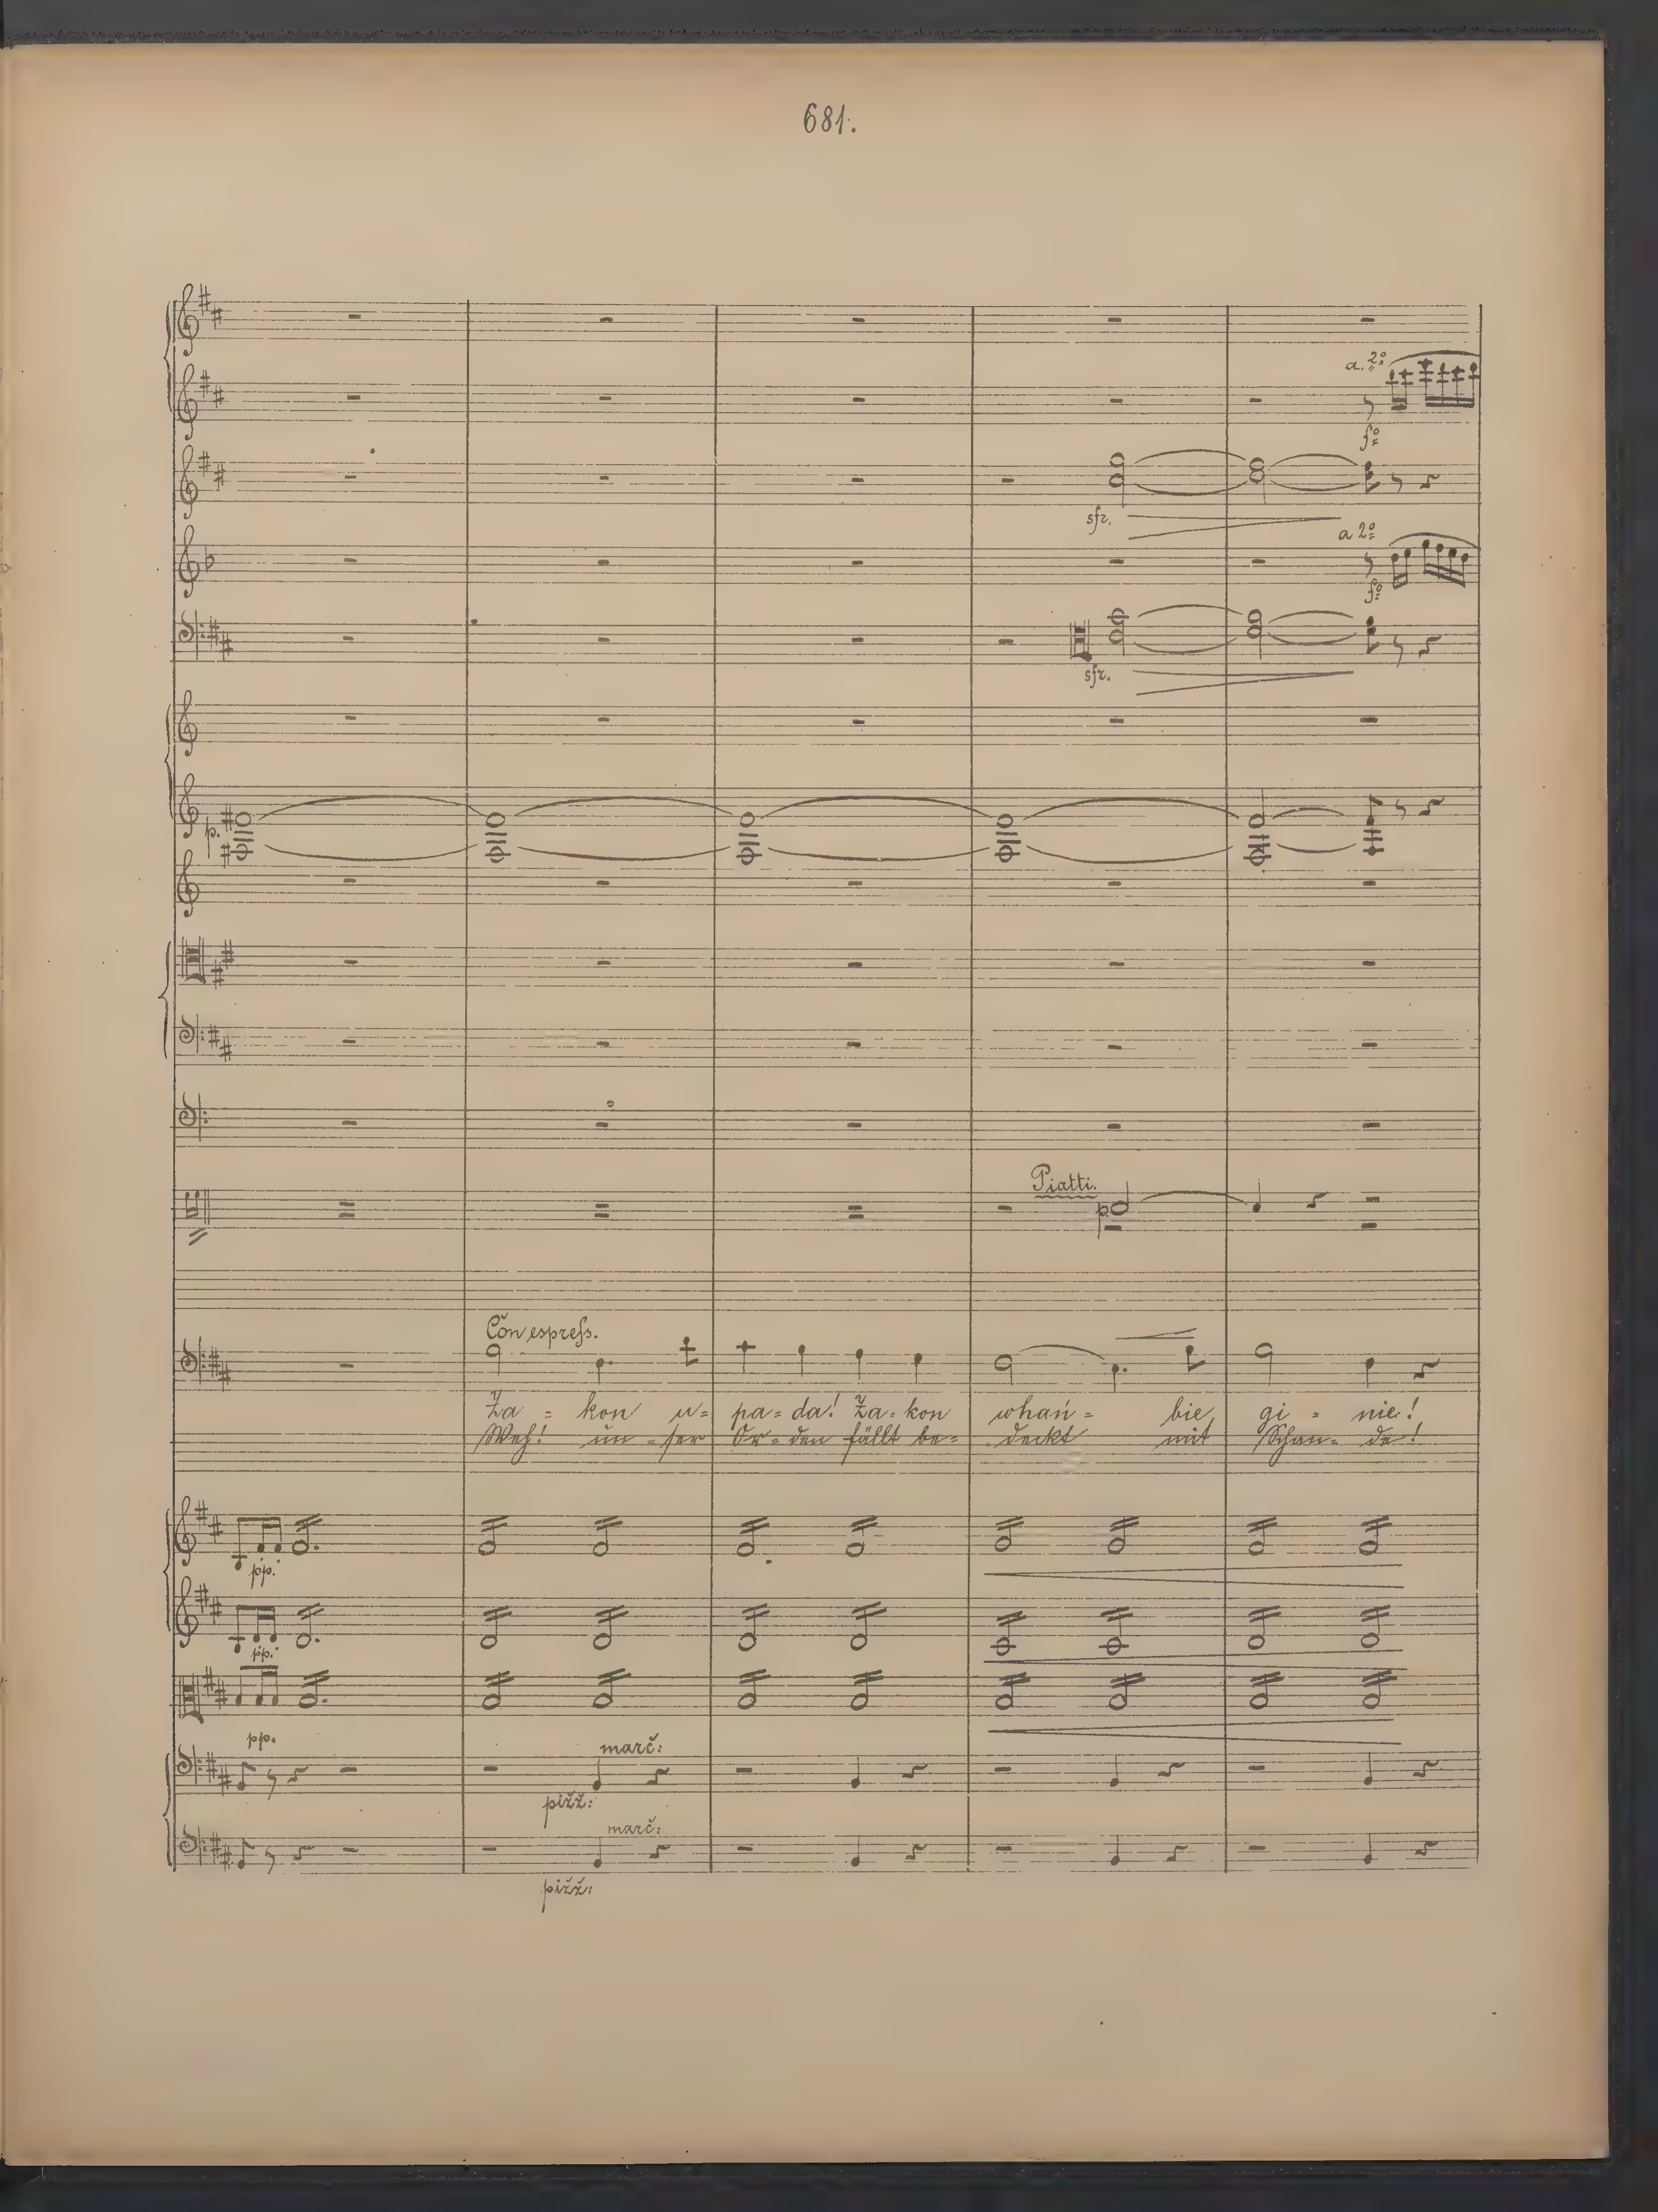 681.
a. 2º
fº
sfz.
a 2º
fº
sfz.
p.
Piatti.
p.
Con espress.
Za = kon u = pa = da! Za = kon whań = bie gi = nie!
Weh! un = ser Or = den fällt be = deckt mit Schan = de!
pp.
pp.
pp.
marč:
pižž:
marč:
pižž: